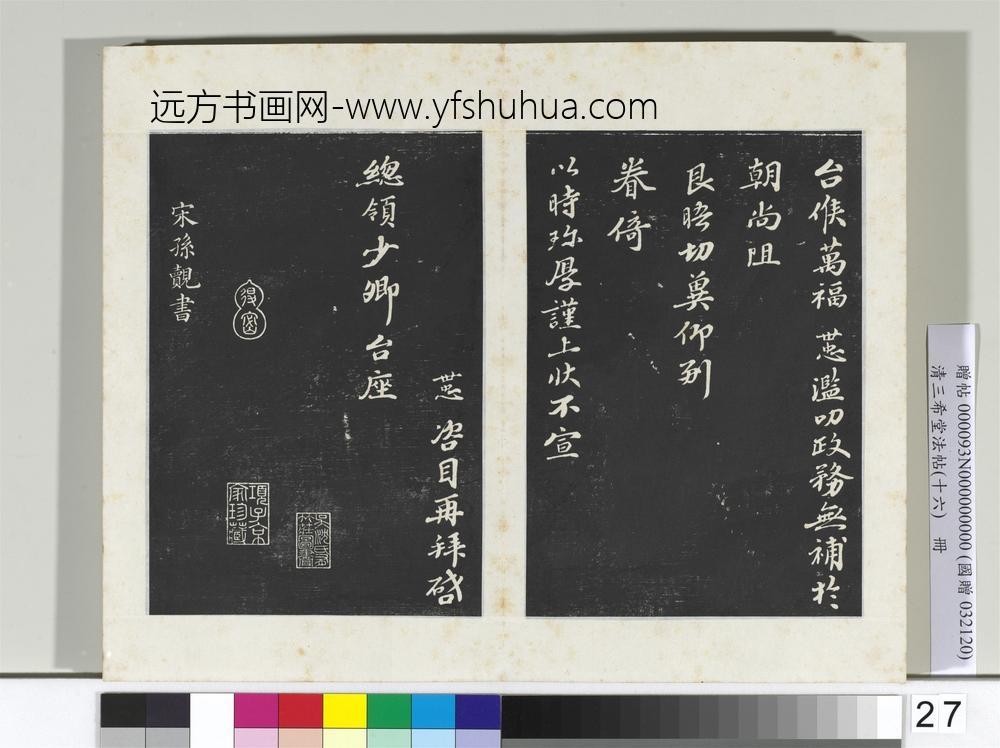 远方书画网-www.yfshuhua.com
台候萬福 懣濫叨政務無補於
朝尚阻
良晤切冀仰副
眷倚
以時珎厚謹上狀不宣
咨目再拜啓
總領少卿台座
宋孫覿書
項子京
家珍藏
贈帖 000093N000000000 (國贈 032120)
清三希堂法帖(十六) 冊
27